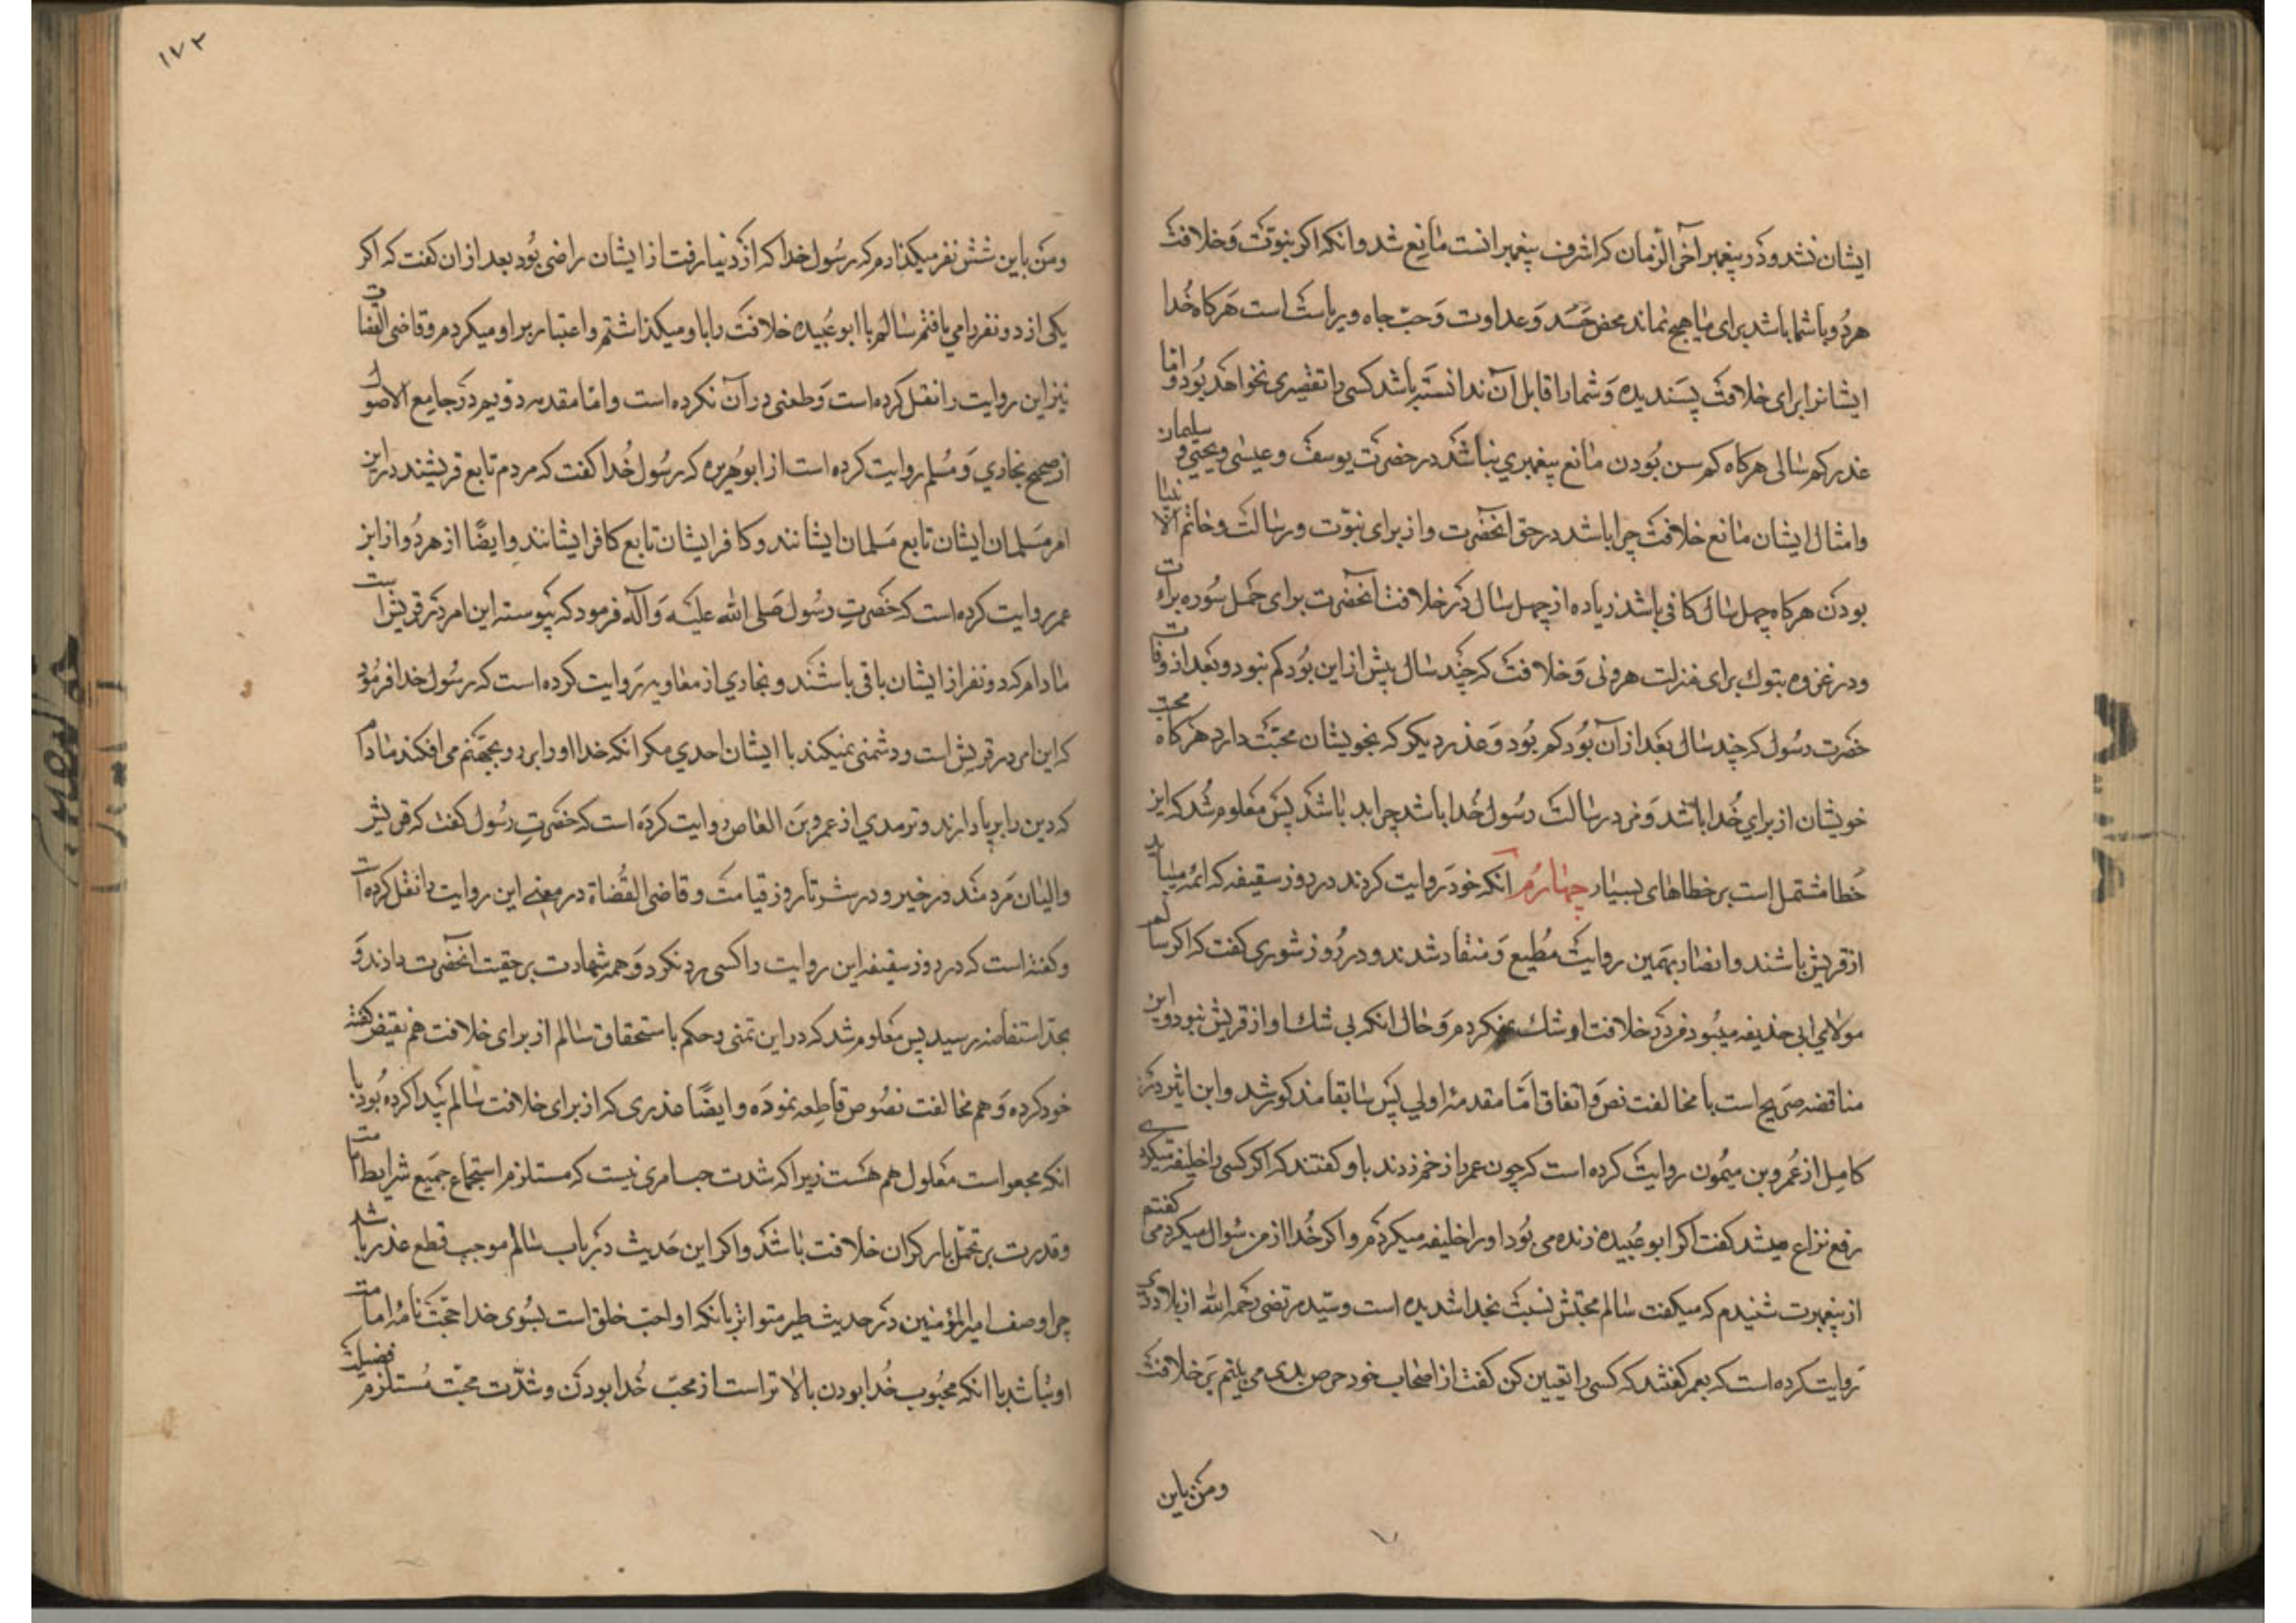 ایشان نشد و در پیغمبر آخر الزمان که اشرف پیغمبرانست مانع شد و انکه اکر نبوّت و خلافت
هر دو با شما باشد برای ما هیچ نماند محض حسد و عداوت و حبّ جاه و ریاست است هرکاه خدا
ایشانرا برای خلافت پسندیده و شما را قابل آن ندانسته باشد کسی را تقصیری نخواهد بود و اما
عذر کم سالی هرکاه کم سن بودن مانع پیغمبری نباشد در حضرت یوسف و عیسی و یحیی و سلیمان
و امثال ایشان مانع خلافت چرا باشد در حق انحضرت و از برای نبوّت و رسالت و خاتم الانبیا
بودن هرکاه چهل سال کافی باشد زیاده از چهل سال در خلافت انحضرت برای حمل سوره برائت
و در غزوه تبوک برای منزلت هرونی و خلافت که چند سال پیش از این بود کم نبود و بعد از وفات
حضرت رسول که چند سال بعد از آن بود کم بود و عذر دیکر که بخویشان محبّت دارد هرکاه محبت
خویشان از برای خدا باشد و در رسالت رسول خدا باشد چرا بد باشد پس معلوم شد که این
خطا مشتمل است بر خطاهای بسیار چهارم آنکه خود روایت کردند در روز سقیفه که ائمه میباید
از قریش باشند و انصار بهمین روایت مطیع و منقاد شدند و در روز شوری کفت که اکر سالم
مولای ابی حذیفه میبود در خلافت او شک نمیکردم و حال انکه بی شک او از قریش نبود و این
مناقضه صریح است با مخالفت نص و اتفاق امّا مقدمه اولی پس سابقا مذکور شد و ابن اثیر در
کامل از عمرو بن میمون روایت کرده است که چون عمر را زخم زدند باو کفتند که اکر کسی را خلیفه میکردی
رفع نزاع میشد کفت اکر ابو عبیده زنده می بود او را خلیفه میکردم و اکر خدا از من سوال میکرد می کفتم
از پیغمبرت شنیدم که میکفت سالم محبتش نسبت بخدا شدیده است و سیّد مرتضی رحمه الله از بلاذری
روایت کرده است که بعمر کفتند که کسی را تعیین کن کفت از اصحاب خود حرص بدی می یابم بر خلافت
و من باین
۱۷۲
و من باین شش نفر میکذارم که رسول خدا که از دنیا رفت از ایشان راضی بود بعد از ان کفت که اکر
یکی از دو نفر را می یافتم سالم یا ابو عبیده خلافت را باو میکذاشتم و اعتبار بر او میکردم و قاضی القضات
نیز این روایت را نقل کرده است و طعنی در آن نکرده است و امّا مقدمه دویم در جامع الاصول
از صحیح بخاری و مسلم روایت کرده است از ابو هریره که رسول خدا کفت که مردم تابع قریشند در این
امر مسلمان ایشان تابع مسلمان ایشانند و کافر ایشان تابع کافر ایشانند و ایضًا از هر دو از ابن
عمر روایت کرده است که حضرت رسول صلی الله علیه و آله فرمود که پیوسته این امر در قریش است
مادام که دو نفر از ایشان باقی باشند و بخاری از معاویه روایت کرده است که رسول خدا فرمود
که این امر در قریش است و دشمنی نمیکند با ایشان احدی مکر انکه خدا او را بر رو بجهنّم می افکند مادام
که دین را بر پا دارند و ترمدی از عمرو بن العاص روایت کرده است که حضرت رسول کفت که قریش
والیان مردمند در خیر و در شر تا روز قیامت و قاضی القضاة در مغنی این روایت را نقل کرده است
و کفته است که در روز سقیفه این روایت را کسی رد نکرد و همه شهادت بر حقیت انحضرت دادند و
بحدّ استفاضه رسید پس معلوم شد که در این تمنی و حکم باستحقاق سالم از برای خلافت هم نقیض کفته
خود کرده و هم مخالفت نصوص قاطعه نموده و ایضًا عذری که از برای خلافت سالم پیدا کرده بود با
انکه مجعول است معلول هم هست زیرا که شدت حب امری نیست که مستلزم استجماع جمیع شرایط امامت
و قدرت بر تحمّل بار کران خلافت باشد و اکر این حدیث در باب سالم موجب قطع عذر باشد
چرا وصف امیر المؤمنین در حدیث طیر متواتر بانکه او احب خلق است بسوی خدا حجّت تامه امامت
او نباشد با انکه محبوب خدا بودن بالاتر است از محبّ خدا بودن و شدّت محبّت مستلزم فضیلت